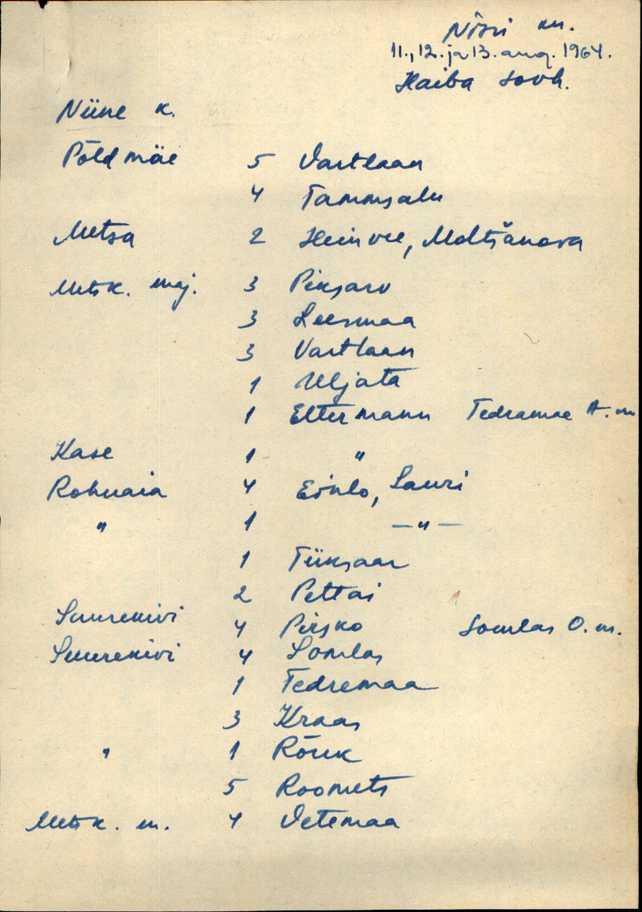 Nõsu m.
11., 12. ja 13. aug. 1964.
Haiba sovh.
Niine k.
Põldmäe 5 Vartlaan
4 Tammsalu
Metsa 2 Heinvee, Moltšanova
Metsk. maj. 3 Piksarv
3 Leesmaa
3 Vartlaan
1 Uljata
1 Eltermann Tedremae A. m
Kase 1 "
Rohuaia 4 Einlo, Lauri
" 1 — " —
1 Tiiksaar
2 Pettai
Suurekivi 4 Pirsko Somlas O. m.
Suurekivi 4 Somlas
1 Tedremaa
3 Kraas
" 1 Rõuk
5 Roomets
Metsk. m. 4 Vetemaa